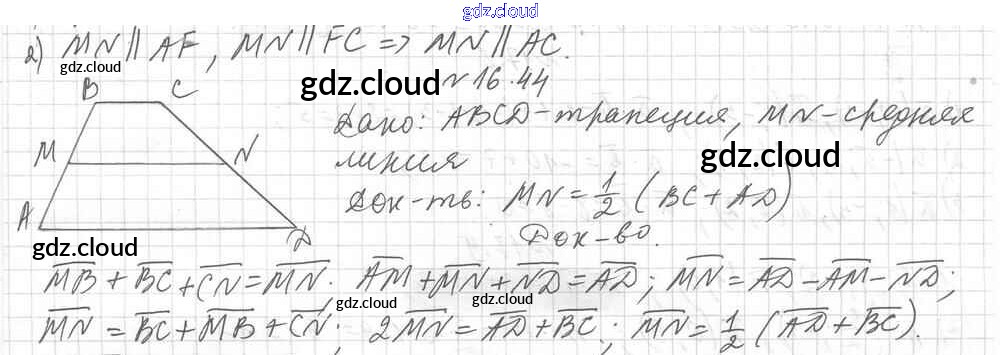 gdz.cloud
2) MN || AF, MN || FC => MN || AC.
gdz.cloud
gdz.cloud
№ 16.44
B C
M N
A D
Дано: ABCD - трапеция, MN - средняя
линия
gdz.cloud
Док-ть: MN = 1/2 (BC + AD)
Док-во.
gdz.cloud
M̅B̅ + B̅C̅ + C̅N̅ = M̅N̅. A̅M̅ + M̅N̅ + N̅D̅ = A̅D̅; M̅N̅ = A̅D̅ - A̅M̅ - N̅D̅;
gdz.cloud
gdz.cloud
M̅N̅ = B̅C̅ + M̅B̅ + C̅N̅; 2M̅N̅ = A̅D̅ + B̅C̅; M̅N̅ = 1/2 (A̅D̅ + B̅C̅).